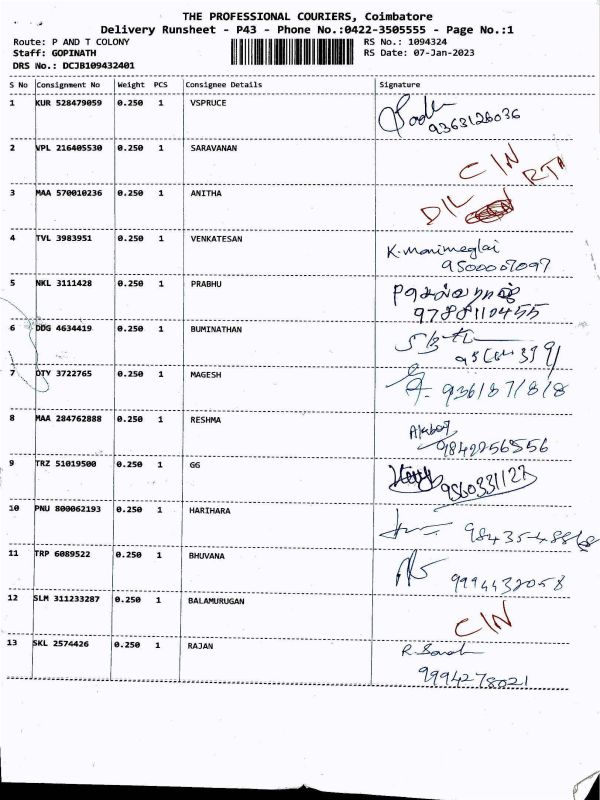 THE PROFESSIONAL COURIERS, Coimbatore
Delivery Runsheet - P43 - Phone No.:0422-3505555 - Page No.:1
Route: P AND T COLONY RS No.: 1094324
Staff: GOPINATH RS Date: 07-Jan-2023
DRS No.: DCJB109432401
S No Consignment No Weight PCS Consignee Details Signature
1 KUR 528479059 0.250 1 VSPRUCE
9363126036
2 VPL 216405530 0.250 1 SARAVANAN
CIN RTN
3 MAA 570010236 0.250 1 ANITHA
DIL
4 TVL 3983951 0.250 1 VENKATESAN K. manimeglai
9500007097
5 NKL 3111428 0.250 1 PRABHU
9788110455
6 DDG 4634419 0.250 1 BUMINATHAN
7 OTY 3722765 0.250 1 MAGESH
9361871818
8 MAA 284762888 0.250 1 RESHMA
9842256556
9 TRZ 51019500 0.250 1 GG
9560331127
10 PNU 800062193 0.250 1 HARIHARA
98435-48868
11 TRP 6089522 0.250 1 BHUVANA
9994432058
12 SLM 311233287 0.250 1 BALAMURUGAN
CIN
13 SKL 2574426 0.250 1 RAJAN
9994278021